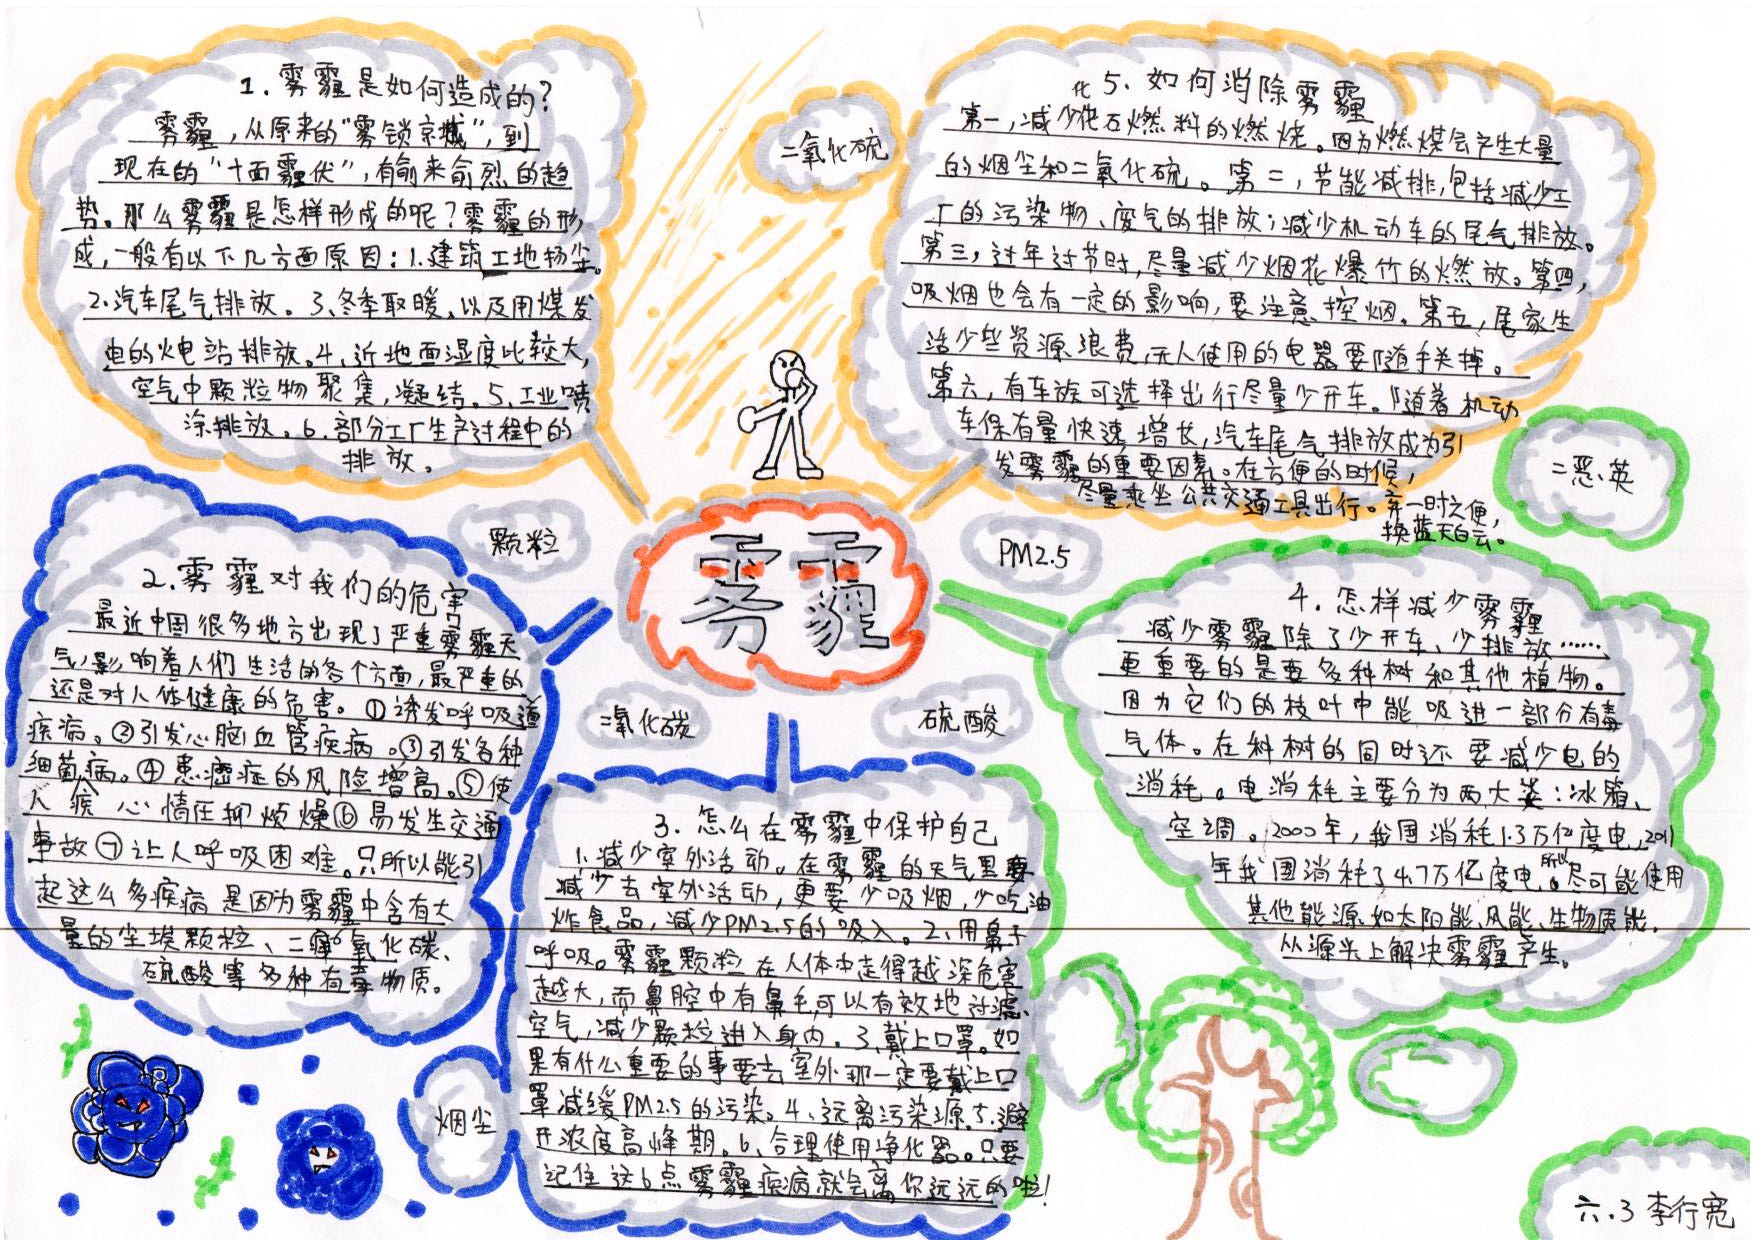 1.雾霾是如何造成的？
雾霾,从原来的“雾锁京城”,到
现在的“十面霾伏”,有俞来俞烈的趋
势。那么雾霾是怎样形成的呢？雾霾的形
成,一般有以下几方面原因：1.建筑工地扬尘。
2.汽车尾气排放。3、冬季取暖,以及用煤发
电的火电站排放。4、近地面湿度比较大,
空气中颗粒物聚集,凝结。5、工业喷
涂排放。6、部分工厂生产过程中的
排放。
二氧化硫
5.如何消除雾霾
化
第一,减少化石燃料的燃烧。因为燃煤会产生大量
的烟尘和二氧化硫。第二,节能减排,包括减少工
厂的污染物、废气的排放;减少机动车的尾气排放。
第三,过年过节时,尽量减少烟花爆竹的燃放。第四,
吸烟也会有一定的影响,要注意控烟。第五,居家生
活少些资源浪费,无人使用的电器要随手关掉。
第六,有车族可选择出行尽量少开车。随着机动
车保有量快速增长,汽车尾气排放成为引
发雾霾的重要因素。在方便的时候,
尽量乘坐公共交通工具出行。弃一时之便,
换蓝天白云。
二恶英
颗粒
雾霾
PM2.5
二氧化碳
硫酸
2.雾霾对我们的危害
最近中国很多地方出现了严重雾霾天
气,影响着人们生活的各个方面,最严重的
还是对人体健康的危害。①诱发呼吸道
疾病。②引发心脑血管疾病。③引发各种
细菌病。④患癌症的风险增高。⑤使
人 心情压抑烦燥⑥易发生交通
事故⑦让人呼吸困难。只所以能引
起这么多疾病是因为雾霾中含有大
量的尘埃颗粒、二氧化碳、
硫酸等多种有毒物质。
3.怎么在雾霾中保护自己
1.减少室外活动。在雾霾的天气里要
减少去室外活动,更要少吸烟,少吃油
炸食品,减少PM2.5的吸入。2、用鼻子
呼吸。雾霾颗粒在人体中走得越深危害
越大,而鼻腔中有鼻毛可以有效地过滤
空气,减少颗粒进入身内。3、戴上口罩。如
果有什么重要的事要去室外那一定要戴上口
罩减缓PM2.5的污染。4、远离污染源。5.避
开浓度高烽期。6、合理使用净化器。只要
记住这6点雾霾疾病就会离你远远的啦！
4.怎样减少雾霾
减少雾霾除了少开车、少排放……,
更重要的是要多种树和其他植物。
因为它们的枝叶中能吸进一部分有毒
气体。在科树的同时还要减少电的
消耗。电消耗主要分为两大类：冰箱、
空调。2000年,我国消耗1.3万亿度电,2011
年我国消耗了4.7万亿度电。所以尽可能使用
其他能源如太阳能、风能、生物质能。
从源头上解决雾霾产生。
烟尘
六.3 李行宽